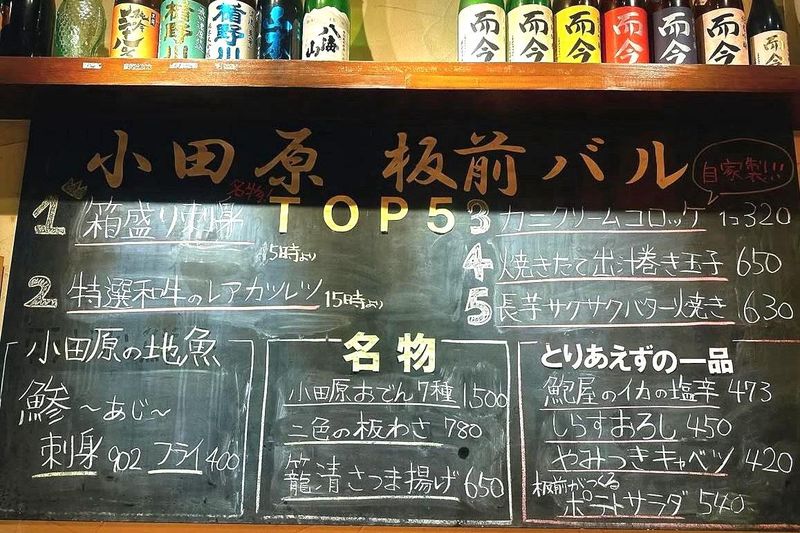 楯野川
楯野川
八海山
而今
而今
而今
而今
而今
而今
而今
小田原 板前バル
自家製!!
名物
TOP5
1 箱盛り刺身
15時より
2 特選和牛のレアカツレツ 15時より
3 カニクリームコロッケ 1コ 320
4 焼きたて出汁巻き玉子 650
5 長芋サクサクバター焼き 630
小田原の地魚
鯵 ～あじ～
刺身 902 フライ 400
名物
小田原おでん7種 1,500
二色の板わさ 780
籠清さつま揚げ 650
とりあえずの一品
鮑屋のイカの塩辛 473
しらすおろし 450
やみつきキャベツ 420
板前がつくる
ポテトサラダ 540